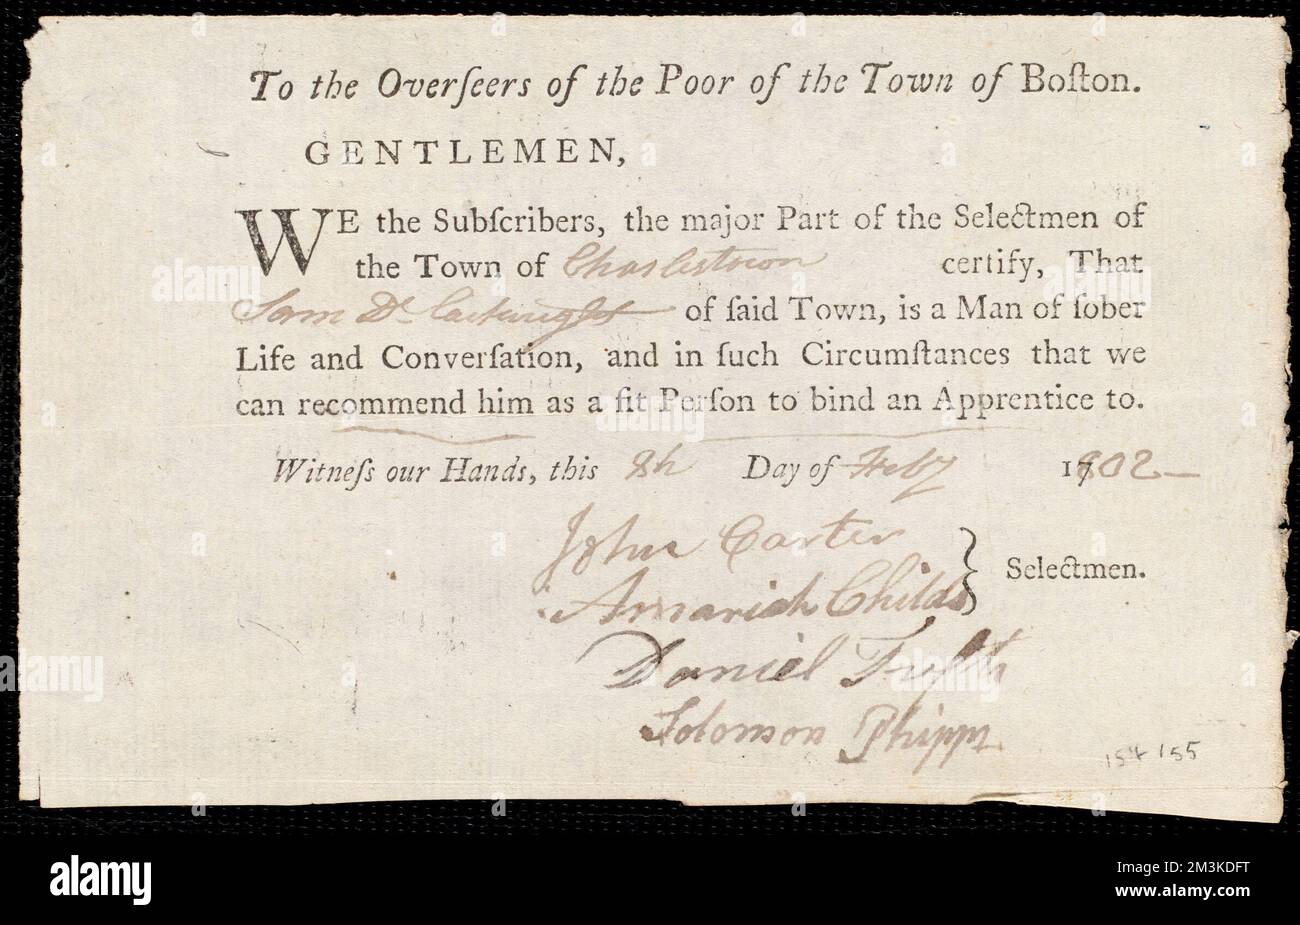 To the Overſeers of the Poor of the Town of Boſton.
GENTLEMEN,
WE the Subſcribers, the major Part of the Selectmen of
the Town of Charlestown certify, That
Sam Dr Cartwright of ſaid Town, is a Man of ſober
Life and Converſation, and in ſuch Circumſtances that we
can recommend him as a fit Perſon to bind an Apprentice to.
Witneſs our Hands, this 8th Day of Feby 1802
John Carter
Amariah Childs Selectmen.
Daniel Tufts
Solomon Phipps
154 155
alamy
Image ID: 2M3KDFT
www.alamy.com